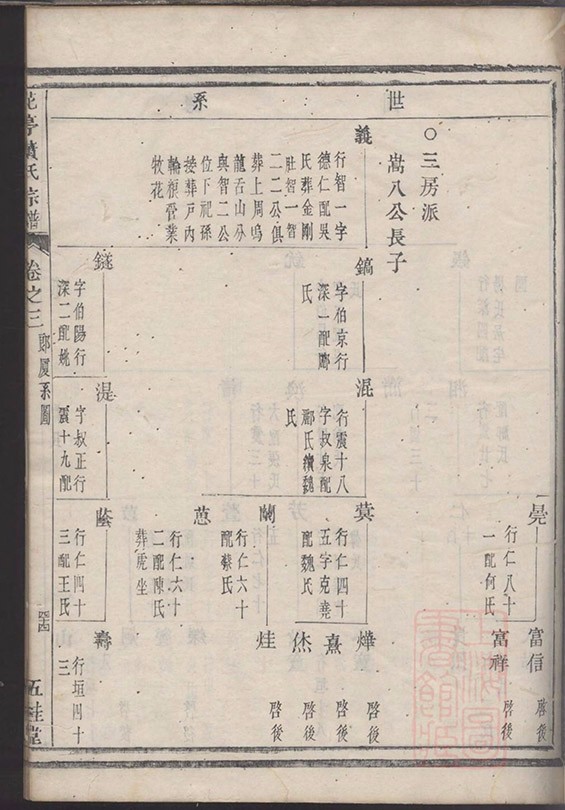 世系
○三房派
嵩八公長子
義
行智一字
德仁配吳
氏葬金剛
肚智一智
二二公俱
葬上周塢
龍舌山分
與智二公
位下祀孫
接葬戶內
輪糧管業
牧花
鎬
字伯京行
深一配鄘
氏
鐩
字伯陽行
深二配姚
混
行震十八
字叔泉配
鄘氏續魏
氏
湜
字叔正行
震十九配
臱
行仁八十
一配何氏
蓂
行仁四十
五字克堯
配魏氏
蘭
行仁六十
配蔡氏
蔥
行仁六十
二配陳氏
葬虎坐
蔭
行仁四十
三配王氏
富信 啓後
富祥 啓後
燁 啓後
熹 啓後
烋 啓後
烓 啓後
壽
行垣四十
三
宗譜
卷之三
鄘厦系圖
五桂堂